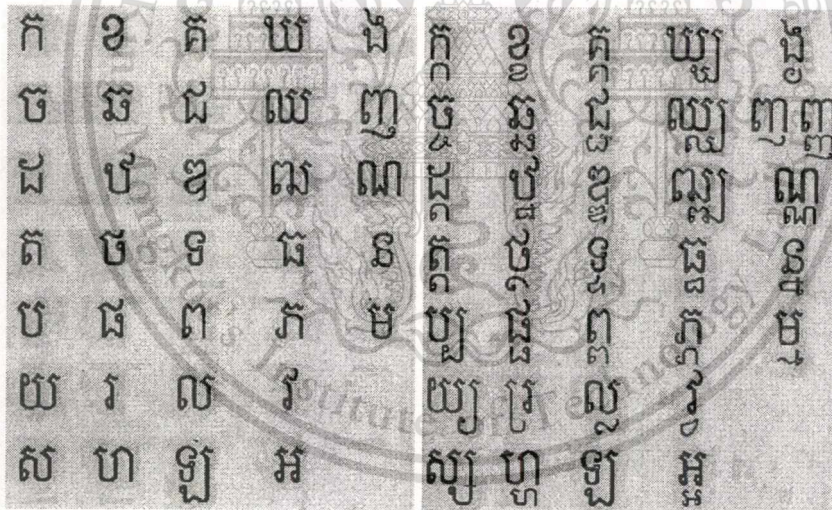 ក ខ គ ឃ ង
ច ឆ ជ ឈ ញ
ដ ឋ ឌ ឍ ណ
ត ថ ទ ធ ន
ប ផ ព ភ ម
យ រ ល វ
ស ហ ឡ អ
ក្ក ខ្ខ គ្គ ឃ្ឃ ង្ង
ច្ច ឆ្ឆ ជ្ជ ឈ្ឈ ញញ្ញ
ដ្ដ ឋ្ឋ ឌ្ឌ ឍ្ឍ ណ្ណ
ត្ត ថ្ថ ទ្ទ ធ្ធ ន្ន
ប្ប ផ្ផ ព្ព ភ្ភ ម្ម
យ្យ រ្រ ល្ល វ្វ
ស្ស ហ្ហ ឡ អ្អ
Mongkut's Institute of Technology